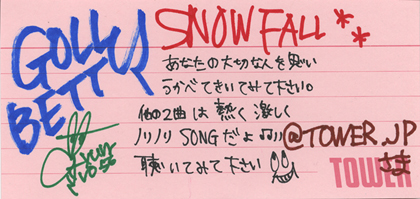 GOLLY
BETTY
SNOWFALL**
あなたの大切な人を思い
うかべてきいてみて下さい。
他の2曲は熱く激しく
ノリノリSONGだよ♫♪
聴いてみて下さい
@TOWER.JP
さま
TOWER